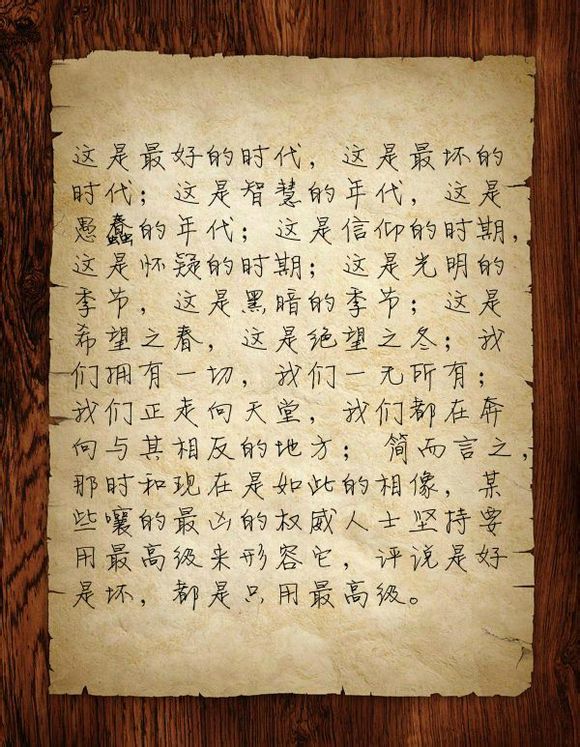 这是最好的时代，这是最坏的
时代；这是智慧的年代，这是
愚蠢的年代；这是信仰的时期，
这是怀疑的时期；这是光明的
季节，这是黑暗的季节；这是
希望之春，这是绝望之冬；我
们拥有一切，我们一无所有；
我们正走向天堂，我们都在奔
向与其相反的地方；简而言之，
那时和现在是如此的相像，某
些嚷的最凶的权威人士坚持要
用最高级来形容它，评说是好
是坏，都是只用最高级。